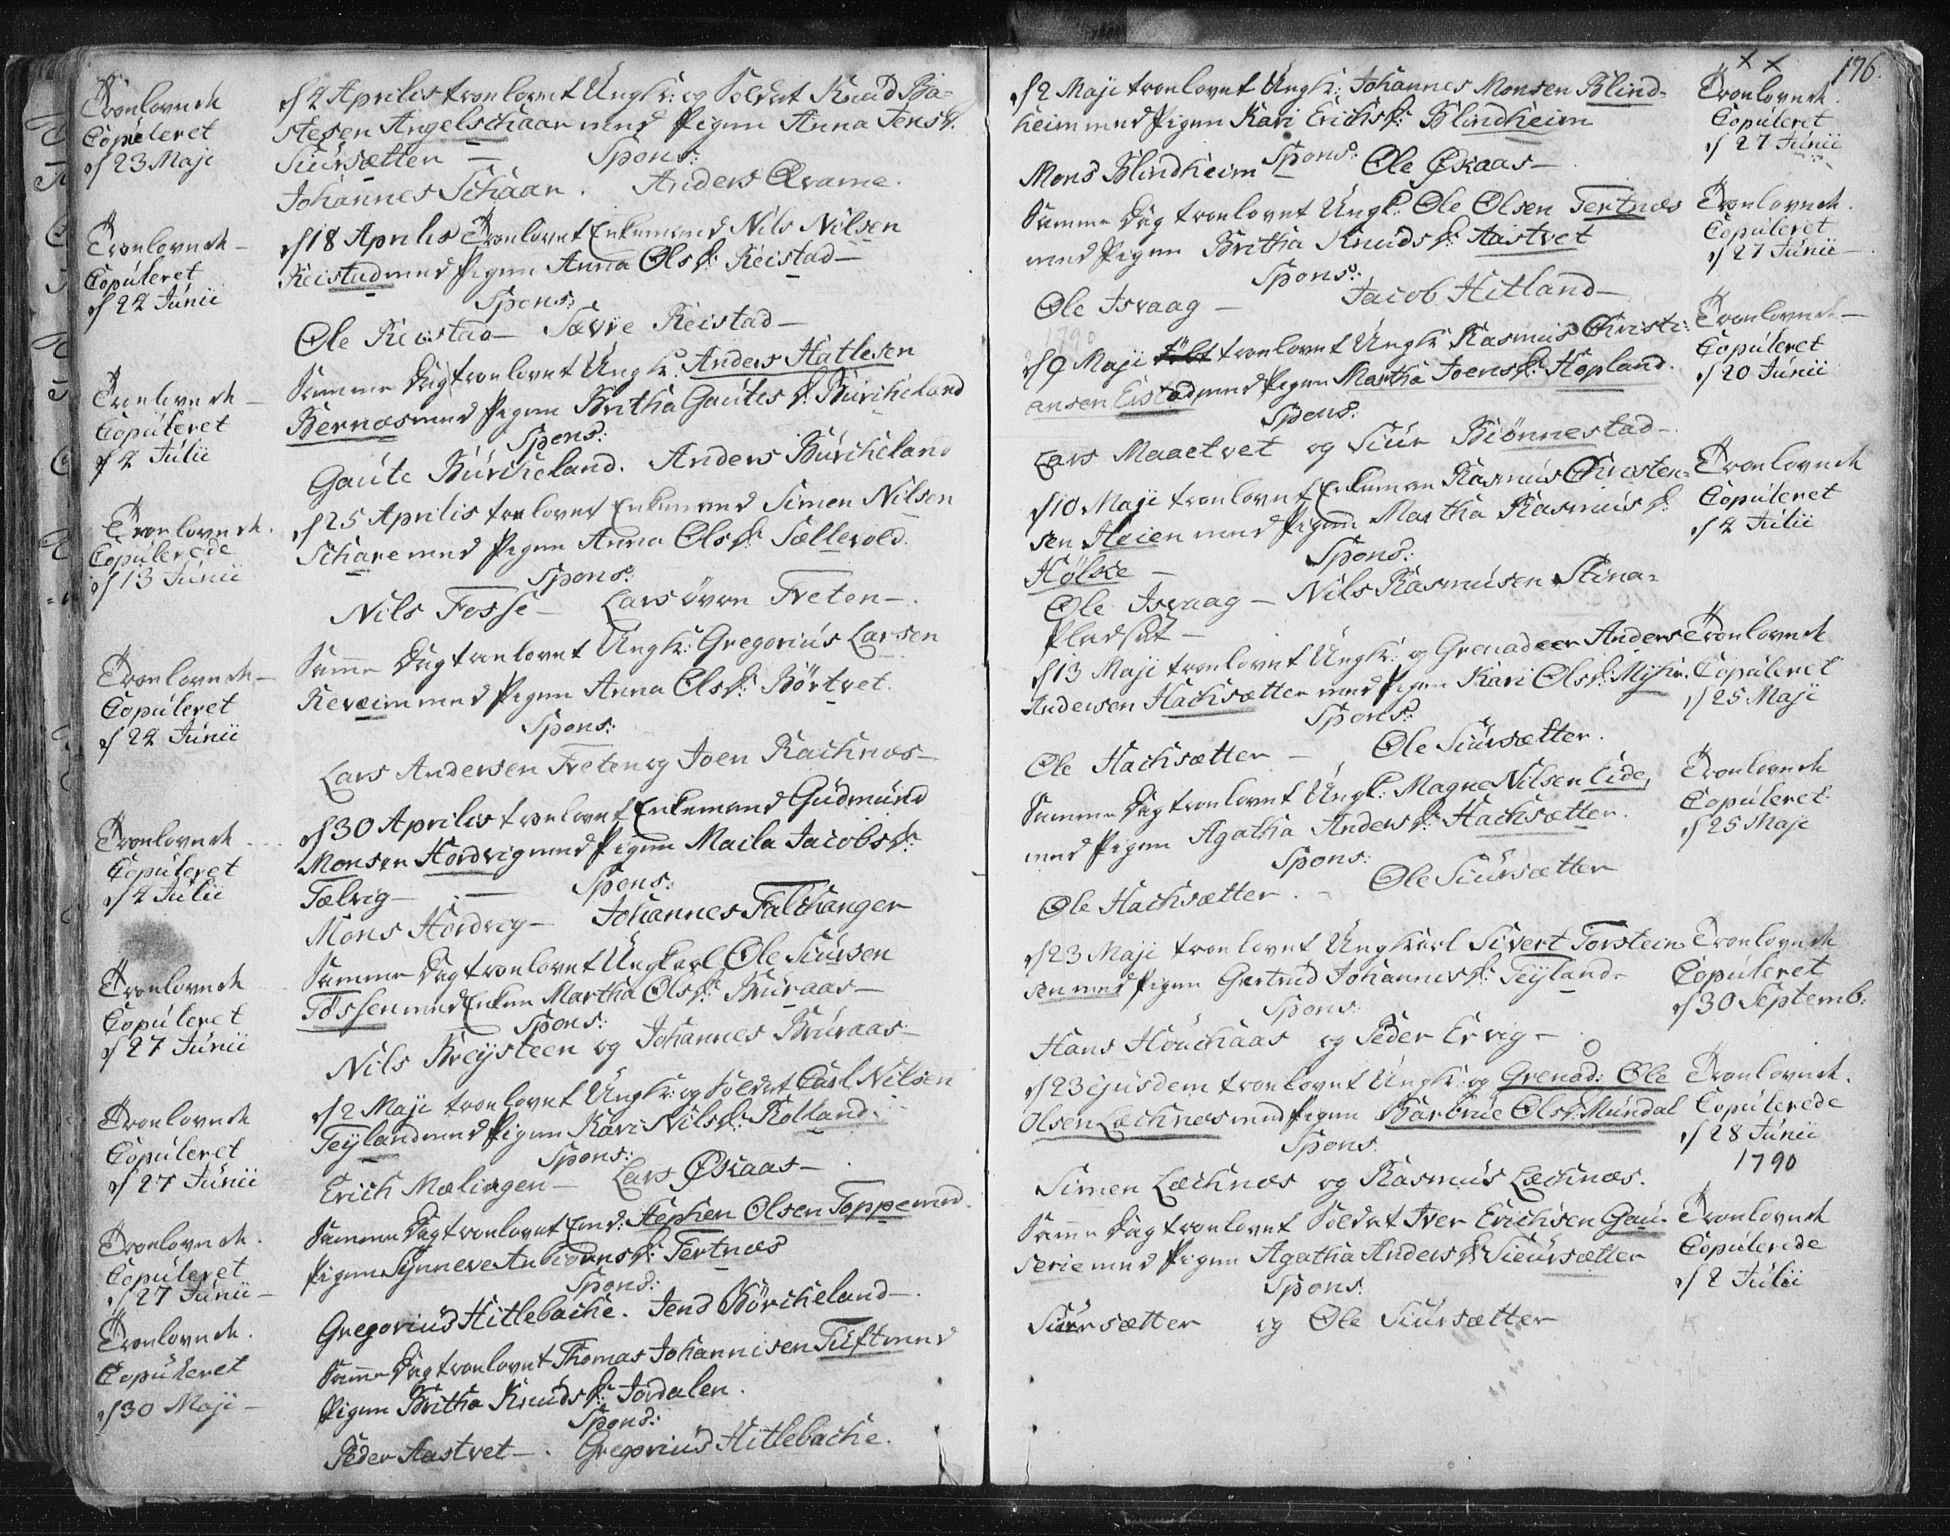 Troelovede
Copuleret
d 23 Maji
d 4 Aprilis troelovet Ungk: og Soldat Knud Ba-
stesen Angelschaar med Pigen Anna Jensd.
Siursætter — Spons:
Johannes Schaar. Anders Qvame.
Troelovede —
Copuleret
d 24 Junii
d 18 Aprilis Troelovet Enkemand Nils Nilsen
Reistad med Pigen Anna Olsd: Reistad —
Spons:
Ole Reistad — Sævie Reistad —
Troelovede —
Copuleret
d 4 Julii
Samme Dag troelovet Ungk: Anders Hatlesen
Bernæs med Pigen Britha Gautes d: Burcheland
Spons:
Gaute Burcheland. Anders Burcheland
Troelovede.
Copulerede
d 13 Junii
d 25 Aprilis troelovet Enkemand Simen Nilsen
Schare med Pigen Anna Olsd: Sællevold.
Spons:
Nils Fosse — Lars øvre Treten —.
Troelovede —
Copuleret
d 24 Junii
Samme Dag troelovet Ungk: Gregorius Larsen
Reveim med Pigen Anna Olsd: Børtvet.
Spons:
Lars Andersen Treten og Joen Rachnæs —
Troelovede
Copuleret
d 4 Julii
d 30 Aprilis troelovet Enkemand Gudmund
Monsen Hordvig med Pigen Maila Jacobsd:
Tælvig — Spons:
Mons Hordvig — Johannes Falchanger
Troelovede
Copuleret
d 27 Junii
Samme Dag troelovet Ungkarl Ole Siursen
Fossen med Enken Martha Olsd: Buraas —
Spons:
Nils Breysteen og Johannes Buraas —
Troelovede
Copuleret
d 27 Junii
d 2 Maji troelovet Ungk: og Soldat Carl Nilsen
Teyland med Pigen Kari Nilsd: Rolland.
Spons:
Erich Mælingen — Lars Øskaas —
Troelovede.
Copuleret
d 27 Junii —
Samme Dag troelovet Emd: Stephen Olsen Toppe med
Pigen Synneve Anbiørnsd: Tertnæs
Spons:
Gregorius Hitlebache. Jens Børcheland —.
Troelovede.
Copuleret
d 30 Maji —
Samme Dag troelovet Thomas Johannisen Tuft med
Pigen Britha Knudsd: Jordalen.
Spons:
Peder Aastvet —. Gregorius Hitlebache.
176.
x x
d 2 Maji troelovet Ungk: Johannes Monsen Blind-
heim med Pigen Kari Erichsd: Blindheim
Spons:
Mons Blindheim Ole Øskaas —
Troelovede.
Copuleret
d 27 Junii
Samme Dag troelovet Ungk: Ole Olsen Tertnæs
med Pigen Britha Knudsd: Aastvet
Spons:
Ole Isvaag — Jacob Hitland —
Troelovede.
Copuleret
d 27 Junii —
1790
d 9 Maji troelovet Ungk: Rasmus Christi-
ansen Eistad med Pigen Martha Joensd: Hopland.
Spons:
Lars Maaetvet og Siur Biønnestad —
Troelovede —
Copuleret
d 20 Junii
d 10 Maji troelovet Enkeman Rasmus Christen-
sen Høien med Pigen Martha Rasmusd:
Hølsie — Spons:
Ole Isvaag — Nils Rasmusen Stina-
Pladset —
Troelovede
Copuleret
d 4 Julii
d 13 Maji troelovet Ungk: og Grenadeer Anders
Andersen Hachsætter med Pigen Kari Olsd: Myhr.
Spons:
Ole Hachsætter — Ole Siursætter.
Troelovede
Copuleret
d 25 Maji
Samme Dag troelovet Ungk: Magne Nilsen Eide,
med Pigen Agatha Andersd: Hachsætter.
Spons:
Ole Hachsætter. — Ole Siursætter
Troelovede
Copuleret
d 25 Maji
d 23 Maji troelovet Ungkarl Sivert Torstein-
sen med Pigen Gertrud Johannisd: Teyland —
Spons:
Hans Houchaas og Peder Ervig —
Troelovede
Copuleret
d 30 Septemb:
d 23 ejusdem troelovet Ungk: og Grenad: Ole
Olsen Lechnæs med Pigen Barbrue Olsd: Mundal
Spons.
Simen Lechnæs og Rasmus Lechnæs.
Troelovede.
Copulerede
d 28 Junii
1790
Samme Dag troelovet Soldat Iver Erichsen Gau-
serie med Pigen Agatha Andersd: Sieursætter
Spons:
Siursætter og Ole Siursætter
Troelovede
Copulerede
d 2 Julii